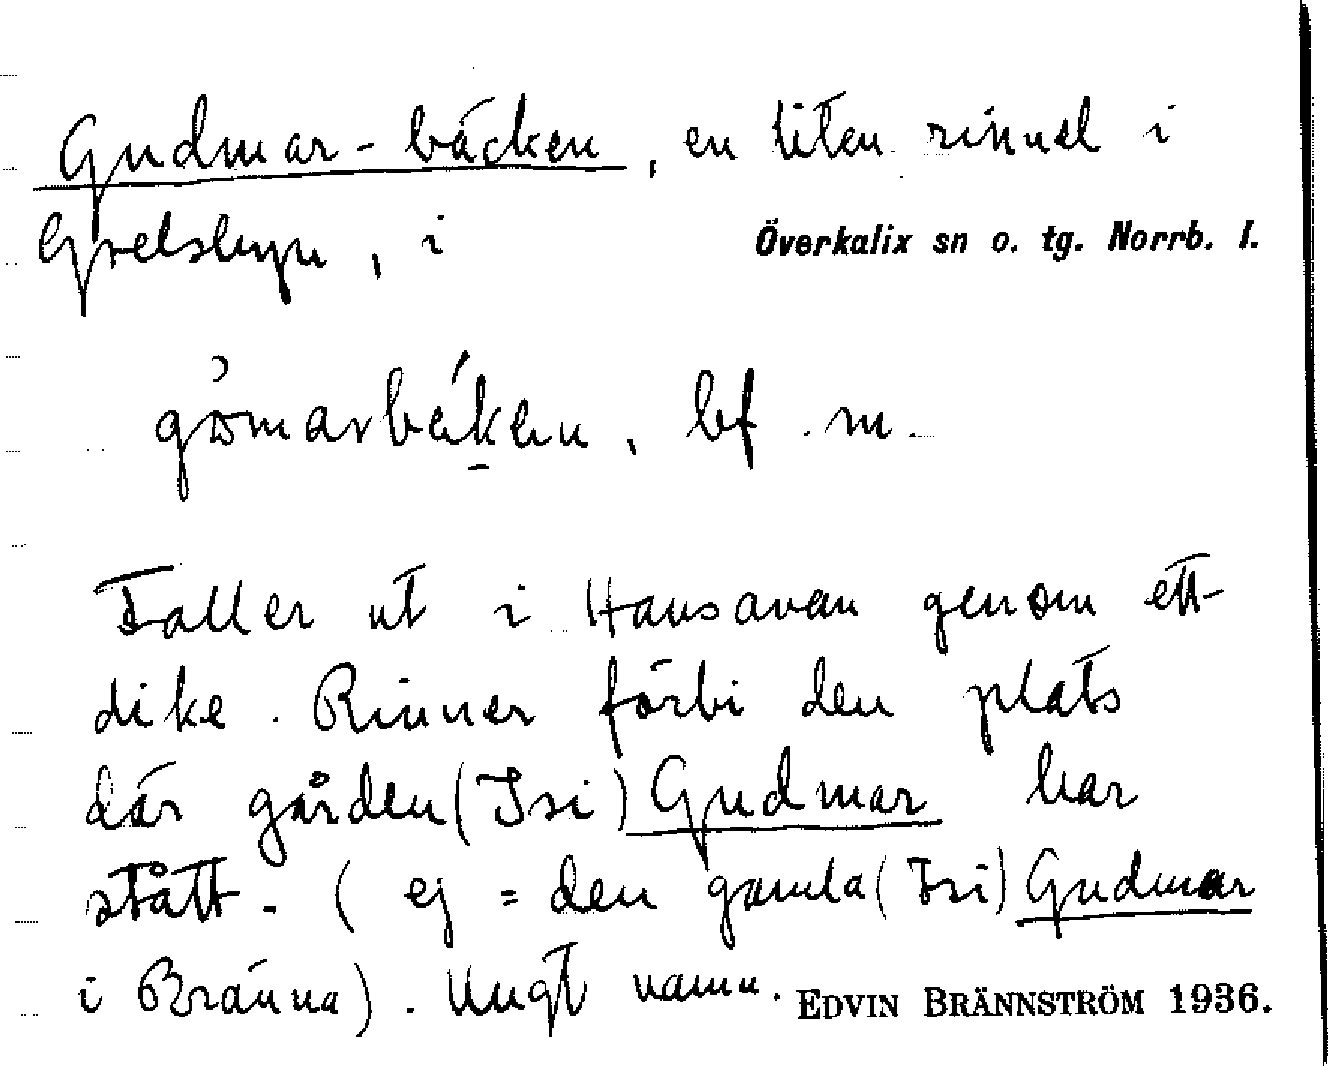 Gudmar-bäcken, en liten rinnel i
Grelsbyn, i Överkalix sn o. tg. Norrb. l.
bf. m.
Faller ut i Hansavan genom ett
dike. Rinner förbi den plats
där gården (Isi) Gudmar har
stått. (ej = den gamla (Isi) Gudmar
i Bränna). Ungt namn. EDVIN BRÄNNSTRÖM 1936.